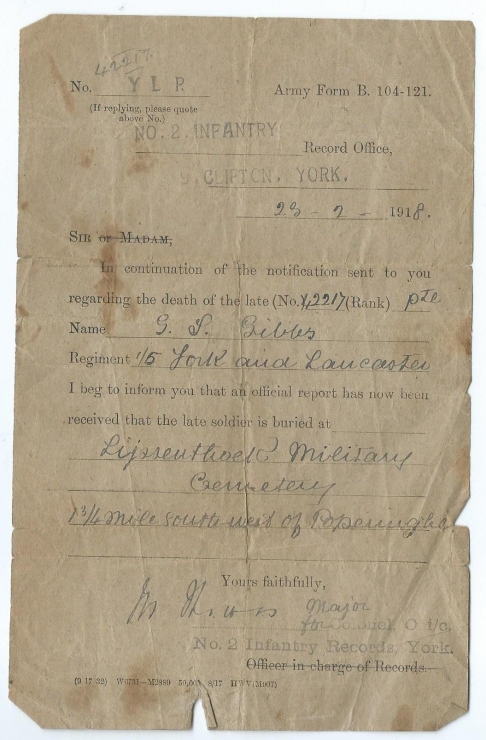 42217.
No. Y L P. Army Form B. 104-121.
(If replying, please quote
above No.)
NO. 2. INFANTRY
Record Office,
9, CLIFTON, YORK.
23 - 2 - 1918.
SIR or MADAM,
In continuation of the notification sent to you
regarding the death of the late (No. 42217 (Rank) Pte
Name G. S. Gibbs
Regiment 1/5 York and Lancaster
I beg to inform you that an official report has now been
received that the late soldier is buried at
Lijssenthoek Military
Cemetery
1 3/4 mile south west of Poperinghe
Yours faithfully,
Major
for Colonel, O i/c.
No. 2 Infantry Records, York.
Officer in charge of Records.
(9 17 32) 50,000 8/17 HWV(M907)